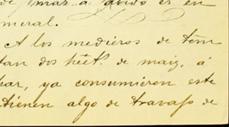 de maiz a
en
meral.
A los medieros de
tan dos hect.s de maiz, á
har, ya consumieron este
tienen algo de travajo de